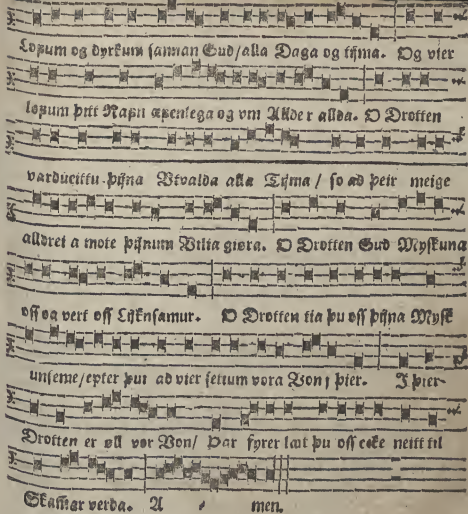 Lopum og dyrkum sannan Gud/alla Daga og tijma. Og vier
lopum þitt Napn æpenlega og vm Allder allda. O Drotten
vardueittu þijna Vtvalda alla Tijma / so ad þeir meige
alldrei a mote þijnum Vilia giøra. O Drotten Gud Myskuna
oss og vert oss Lijknsamur. O Drotten tia þu oss þijna Mysk
unseme/epter þui ad vier settum vora Von j þier. I þier
Drotten er øll vor Von/ Þar fyrer læt þu oss ecke neitt til
Skammar verda. A men.